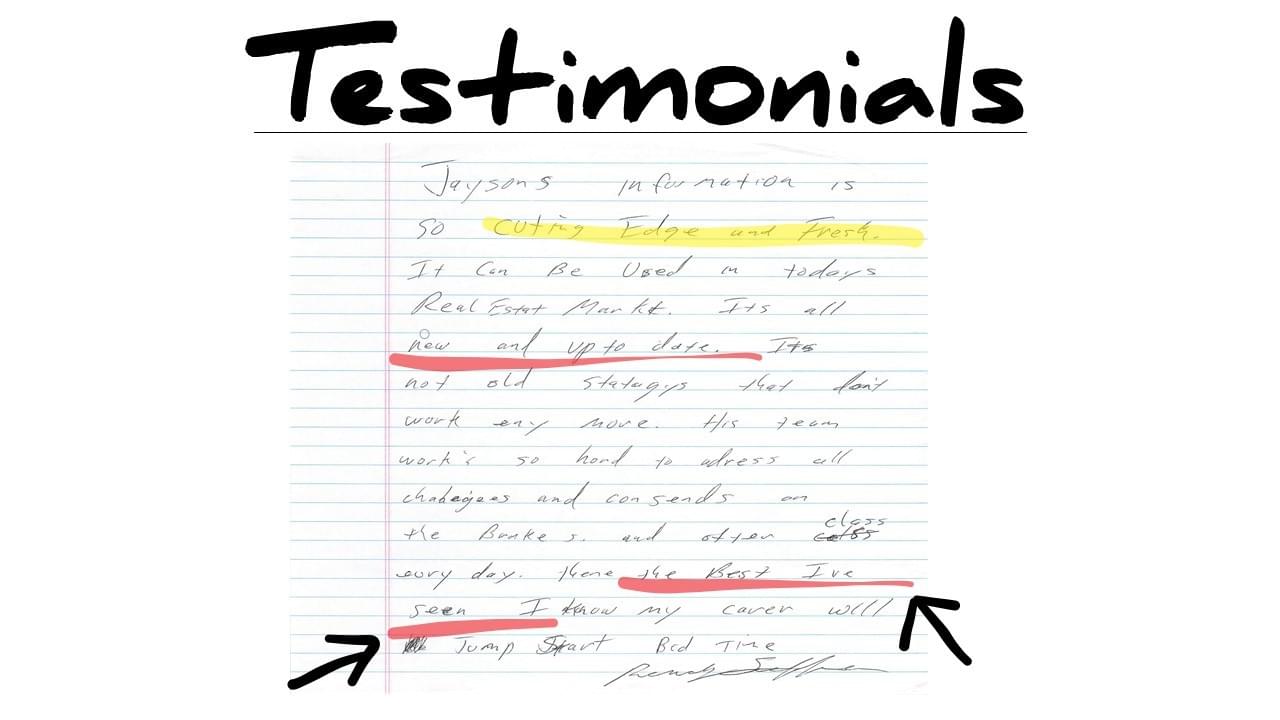 Testimonials
Jaysons information is
so cuting Edge and Fresh.
It Can Be Used in todays
Real Estat Markt. Its all
new and up to date. Its
not old statagys that don't
work eny more. His team
work's so hard to adress all
and consends on
the Brakes. and after class
evry day. there the Best I've
seen I know my carer will
Jump Start Bcd Time